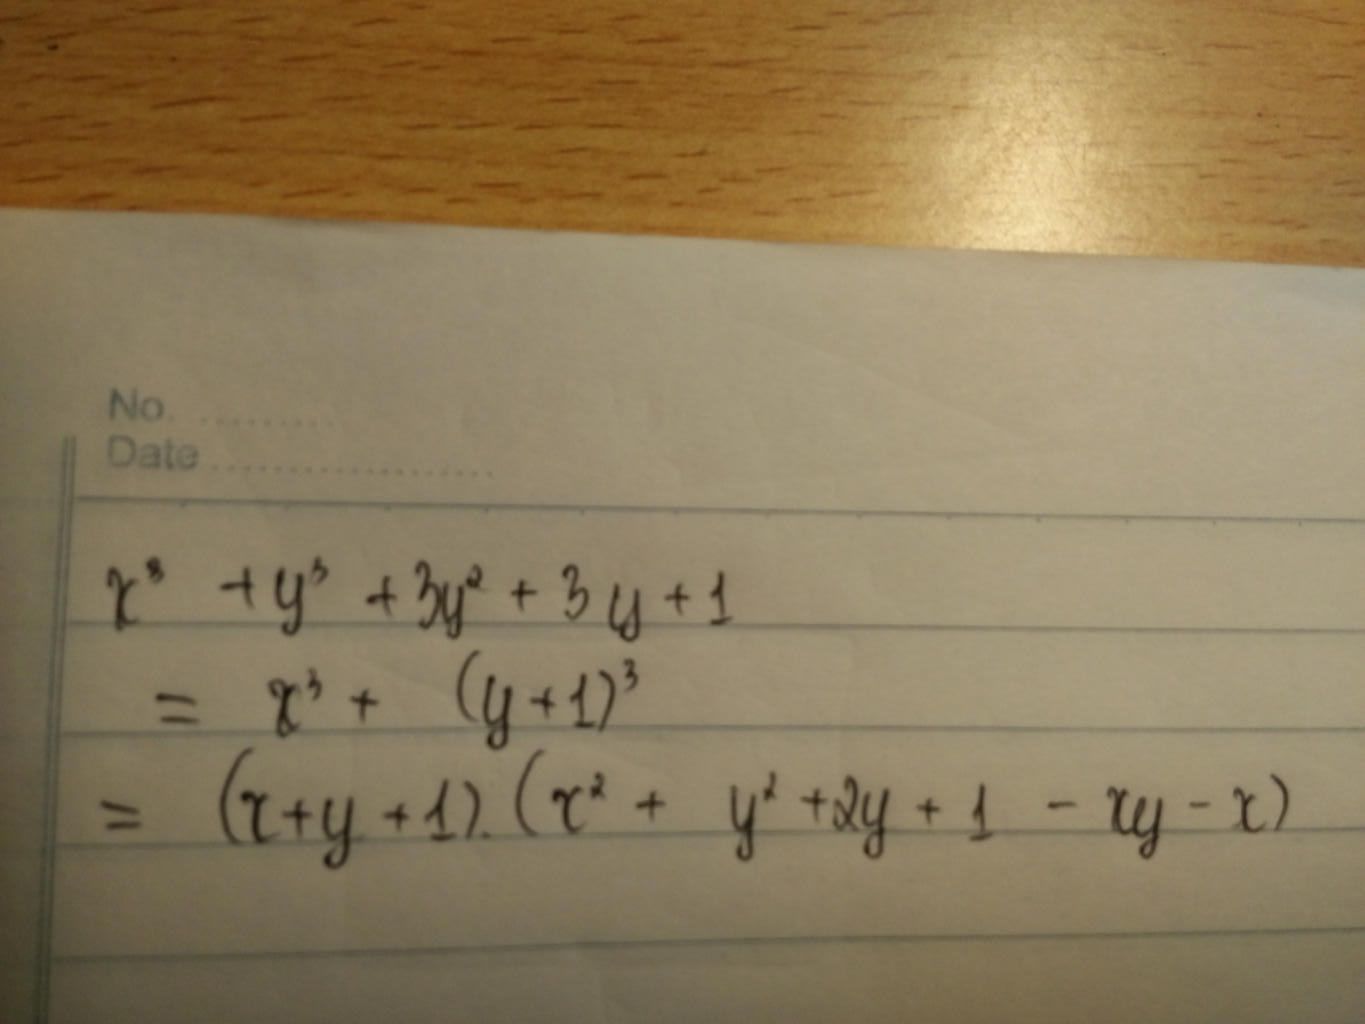 No. .........
Date ...................
x³ + y³ + 3y² + 3y + 1
= x³ + (y + 1)³
= (x + y + 1).(x² + y² + 2y + 1 - xy - x)